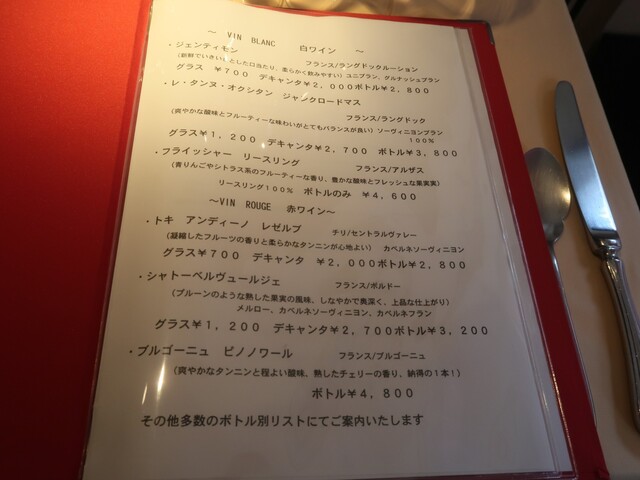 ～　VIN　BLANC　　白ワイン　～
・ジェンティモン　　フランス/ラングドックルーション
（新鮮でいきいきとした口当たり、柔らかく飲みやすい）ユニブラン、グルナッシュブラン
グラス　￥７００　デキャンタ￥２，０００ボトル￥２，８００
・レ・タンヌ・オクシタン　ジャンクロードマス
フランス/ラングドック
（爽やかな酸味とフルーティーな味わいがとてもバランスが良い）ソーヴィニヨンブラン
１００％
グラス￥１，２００　デキャンタ￥２，７００　ボトル￥３，８００
・フライッシャー　リースリング　　フランス/アルザス
（青りんごやシトラス系のフルーティーな香り、豊かな酸味とフレッシュな果実実）
リースリング１００％　ボトルのみ　￥４，６００
～VIN　ROUGE　赤ワイン～
・トキ　アンディーノ　レゼルブ　　チリ/セントラルヴァレー
（凝縮したフルーツの香りと柔らかなタンニンが心地よい）　カベルネソーヴィニヨン
グラス￥７００　デキャンタ　￥２，０００ボトル￥２，８００
・シャトーベルヴュールジェ　　フランス/ボルドー
（プルーンのような熟した果実の風味、しなやかで奥深く、上品な仕上がり）
メルロー、カベルネソーヴィニヨン、カベルネフラン
グラス￥１，２００　デキャンタ￥２，７００ボトル￥３，２００
・ブルゴーニュ　ピノノワール　　フランス/ブルゴーニュ
（爽やかなタンニンと程よい酸味、熟したチェリーの香り、納得の１本！）
ボトル￥４，８００
その他多数のボトル別リストにてご案内いたします